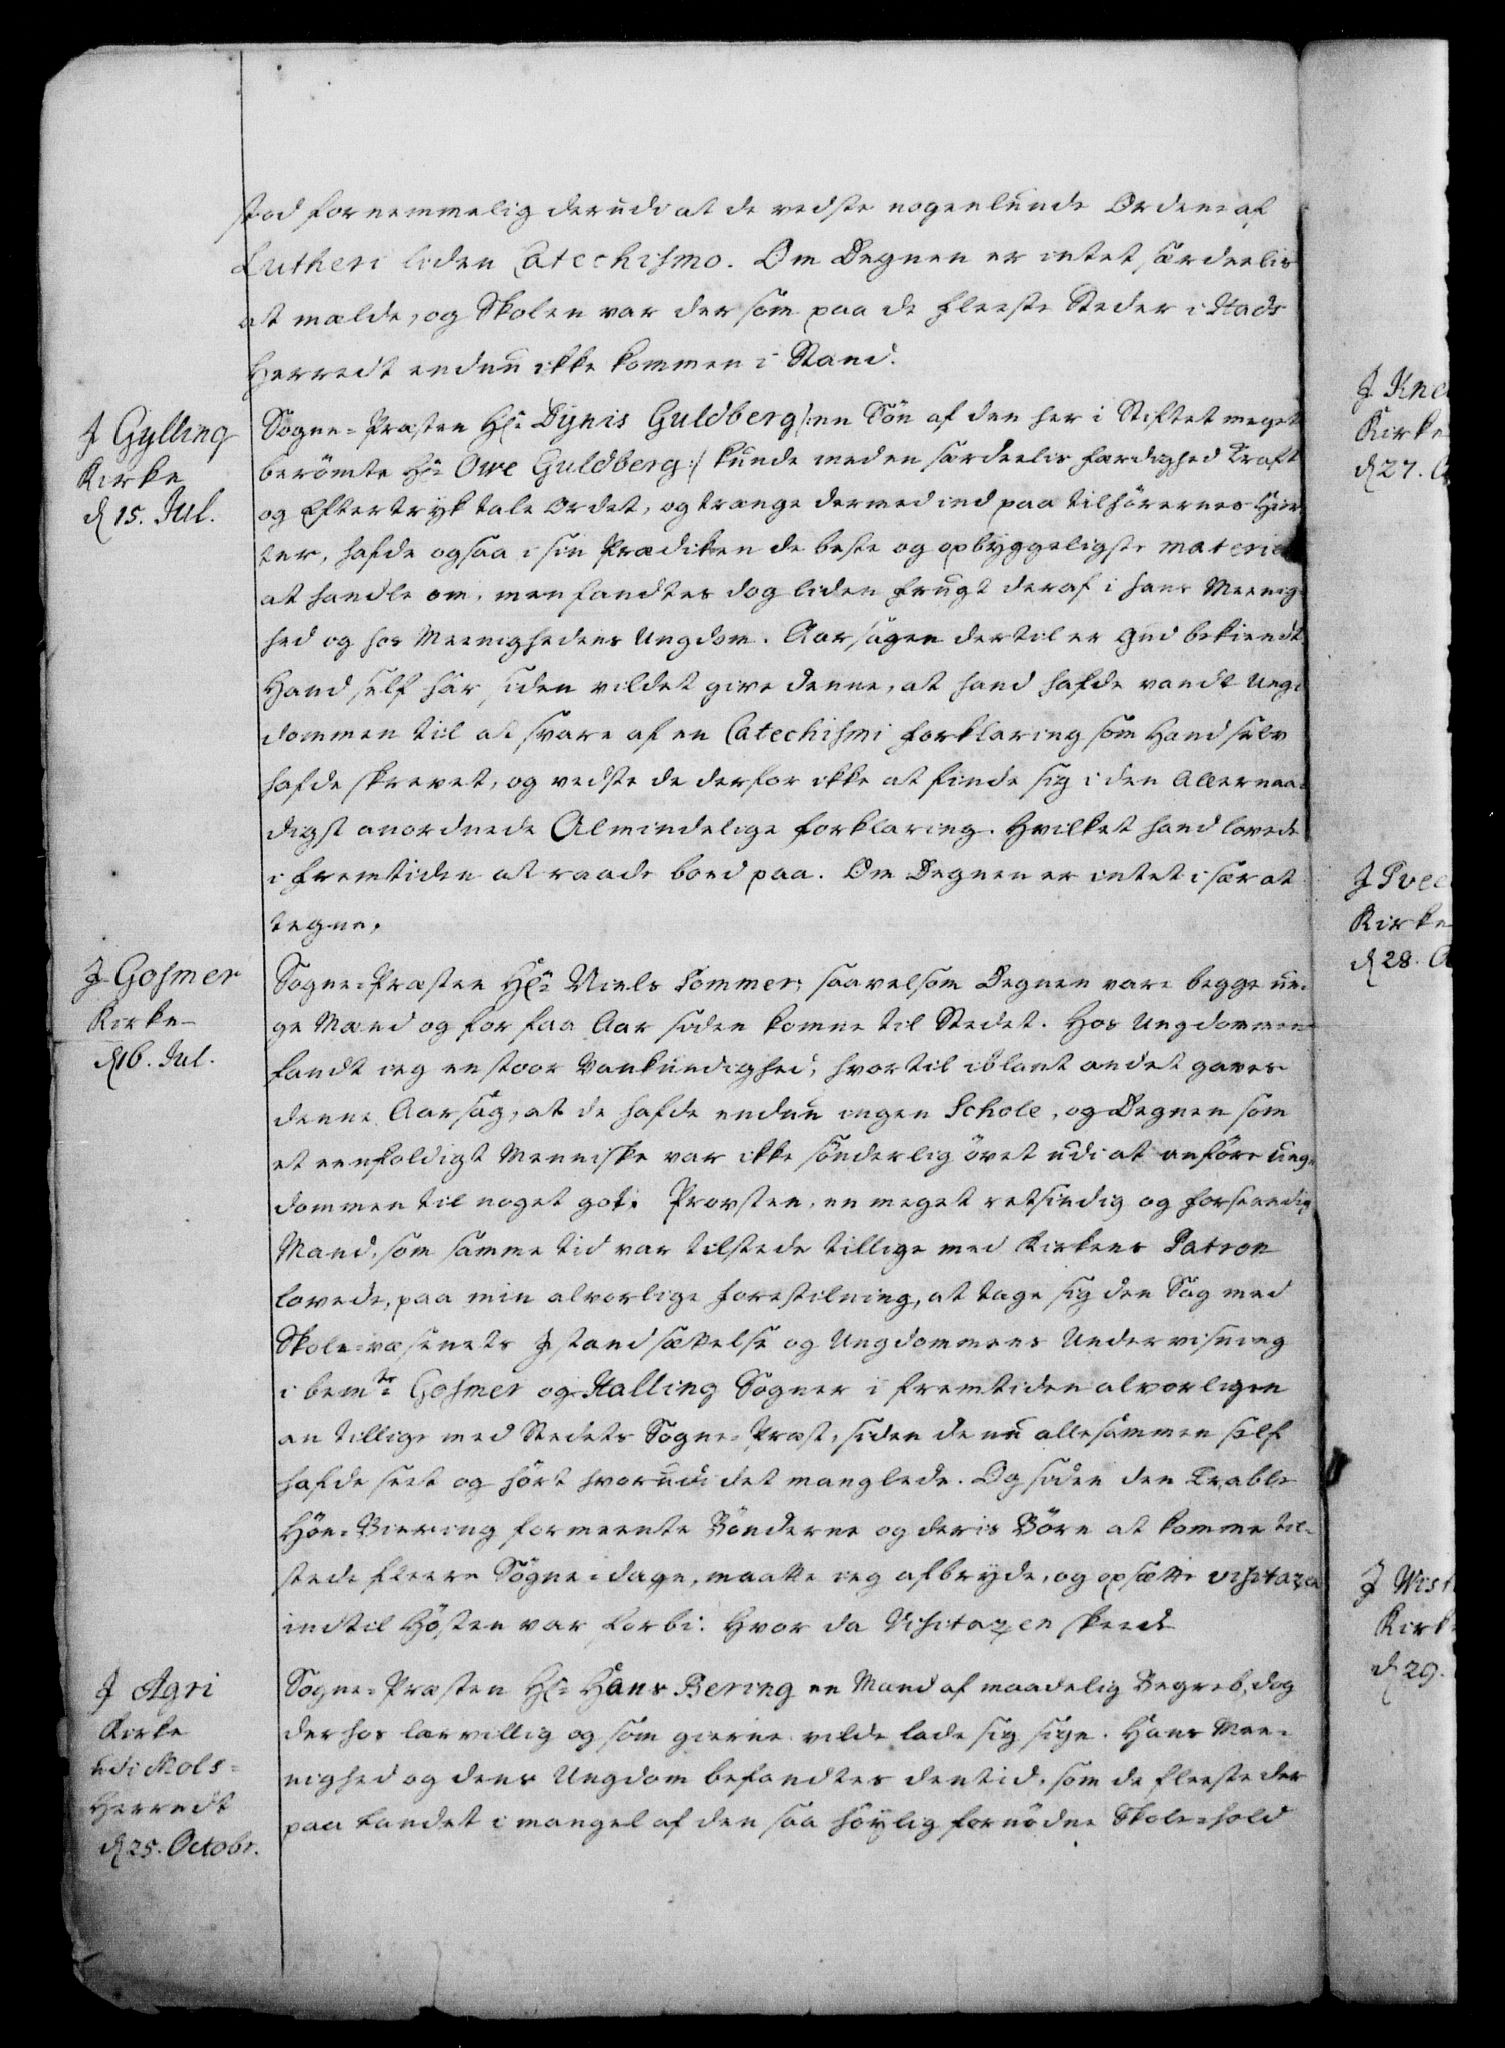 stod fornemmelig derudi at de vedste nogenlunde Ordene af
Lutheri liden Catechismo. Om Degnen er intet særdeelis
at mælde, og Skolen var der som paa de fleeste Steder i Hads
Herredt endnu ikke kommen i Stand.
I Gylling
Kirke
d 15. Jul.
Sogne-Præsten Hr. Dÿnis Guldberg /:en Søn af den her i Stiftet meget
berömte Hr. Owe Guldberg:/ kunde med en særdeelis færdighed Kraft
og Eftertryk tale Ordet, og trænge dermed ind paa tilhörernes Hier
ter, hafde ogsaa i sin Prædiken de beste og opbyggeligste materier
at handle om, men fandtes dog liden frugt deraf i hans Meenig
hed og hos Meenighedens Ungdom. Aarsagen dertil er Gud bekiendt
Hand self har siden vildet give denne, at hand hafde vandt Ung-
dommen til at svare af en Catechismi forklaring som Hand selv
hafde skrevet, og vedste de derfor ikke at finde sig i den Allernaa-
digst anordnede Almindelige forklaring. Hvilket hand lovede
i fremtiden at raade bood paa. Om Degnen er intet i sær at
tegne.
I Gosmer
Kirke
d 16. Jul.
Sogne-Præsten Hr. Niels Sommer, saavelsom Degnen vare begge un-
ge Mænd og for faa Aar siden komne til Stedet. Hos Ungdommen
fandt ieg en stoor Vankundighed, hvortil iblant andet gaves
denne Aarsag, at de hafde endnu ingen Schole, og Degnen som
et eenfoldigt Menniske var ikke sönderlig övet udi at anföre ung-
dommen til noget got. Provsten, en meget retsindig og forstandig
Mand, som samme tid var tilstede tillige med Kirkens Patron
lovede, paa min alvorlige forestilning, at tage sig den Sag med
Skole-væsenets Istandsættelse og Ungdommens Underviisning
i bemte Gosmer og Halling Sogner i fremtiden alvorligen
an tillige med Stedets Sogne-Præst, siden de nu allesammen self
hafde seet og hört hvorudi det manglede. Og siden den trable
Höe-Biering formeente Bönderne og deris Börn at komme til-
stede fleere Sögne-dage, maatte ieg afbryde, og opsætte visitazen
indtil Hösten var forbi. Hvor da Visitazen skeede
I Agri
Kirke
udi Mols-
Herredt
d 25. Octobr.
Sogne-Præsten Hr. Hans Bering en Mand af maadelig Begreb, dog
derhos lærvillig og som gierne vilde lade sig sige. Hans Mee-
nighed og dens Ungdom befandtes den tid, som de fleeste der
paa Landet i mangel af den saa höylig fornödne Skole-hold
I Kne
Kirke
d 27.
I Tvee
Kirke
d 28.
I Wist
Kirk
d 29.